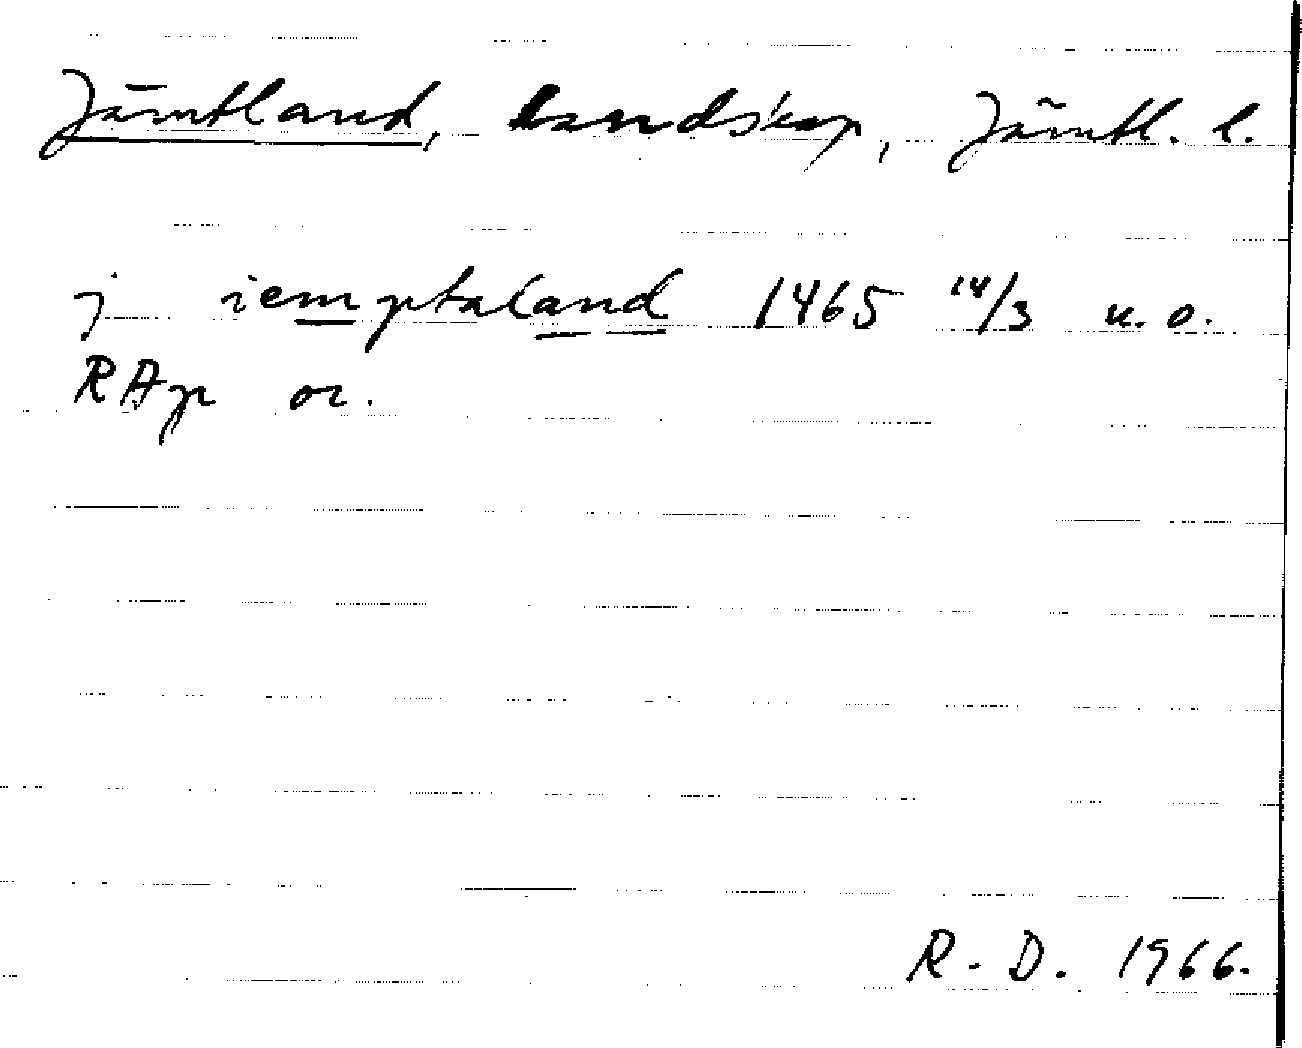 Jämtland, landskap, Jämtl. l.
j iemptaland 1465 14/3 u. o.
RAp or.
R-D. 1966.